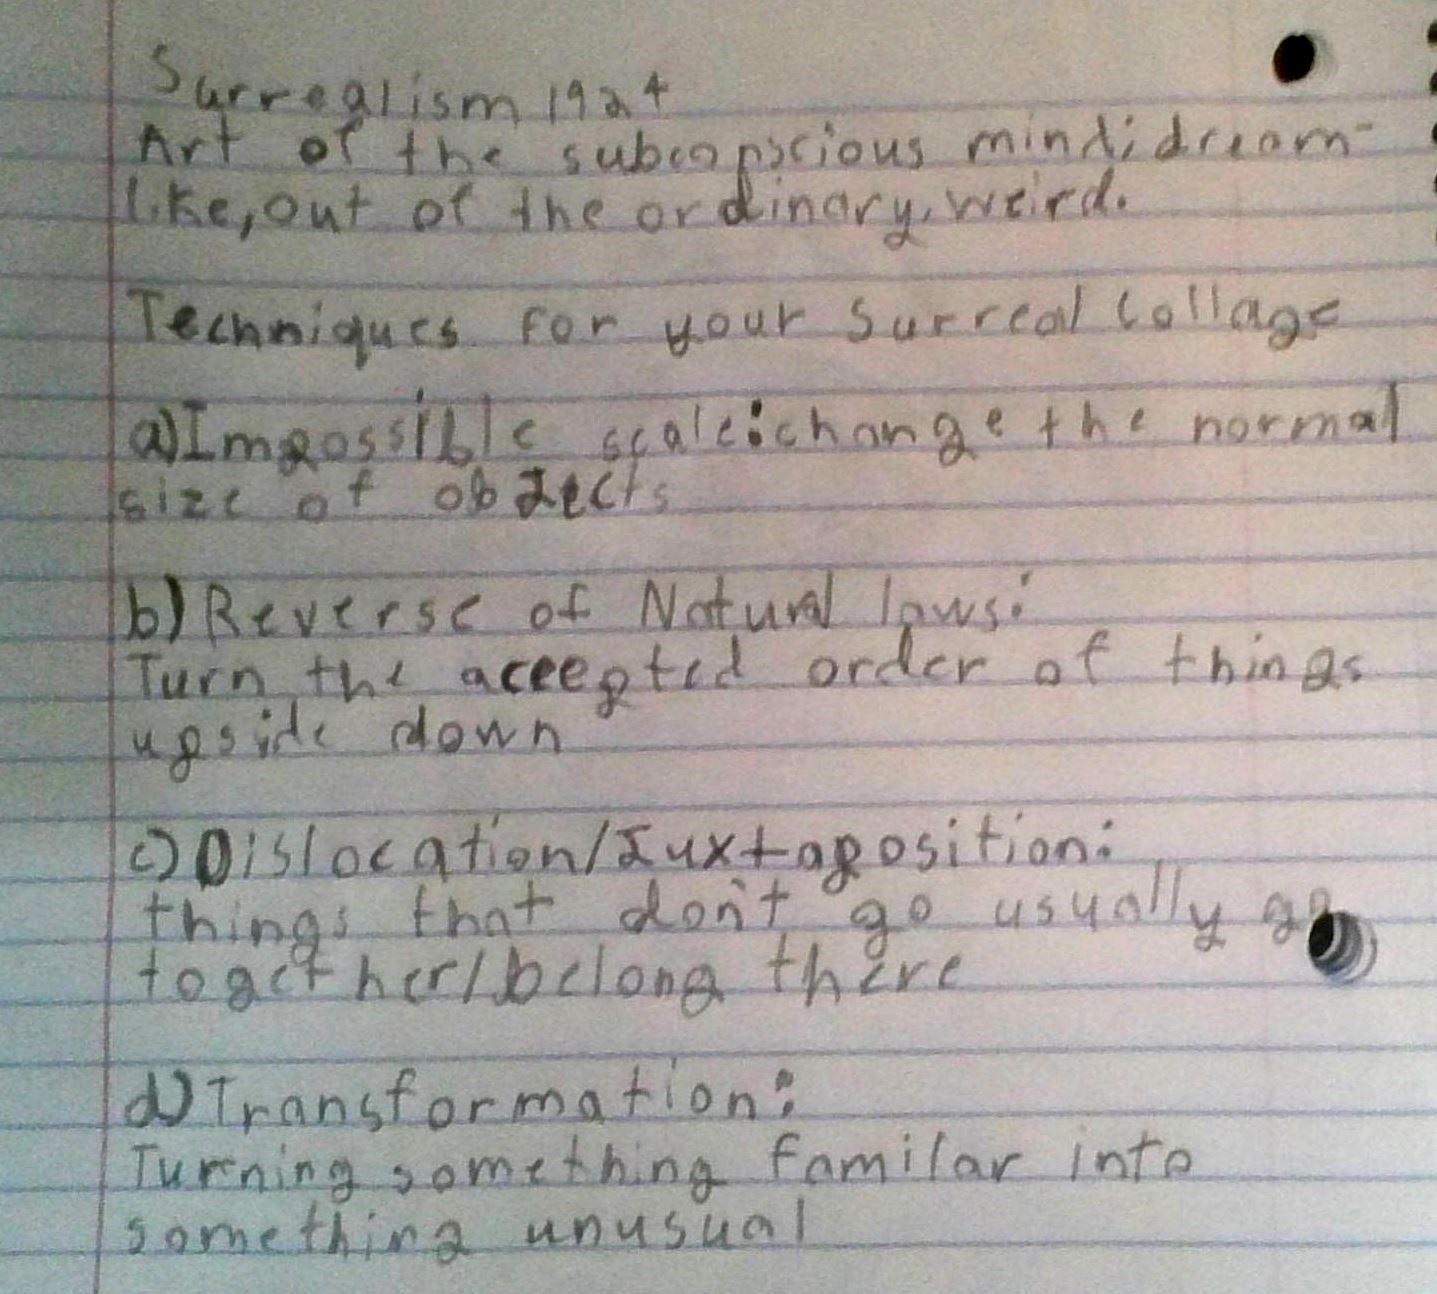 Surrealism 1924
Art of the subconscious mind; dream-
like, out of the ordinary, weird.
Techniques for your Surreal Collage
a) Impossible scale: change the normal
size of objects
b) Reverse of Natural laws:
Turn the accepted order of things
upside down
c) Dislocation/Juxtaposition:
things that don't go usually go
together/belong there
d) Transformation:
Turning something familar into
something unusual